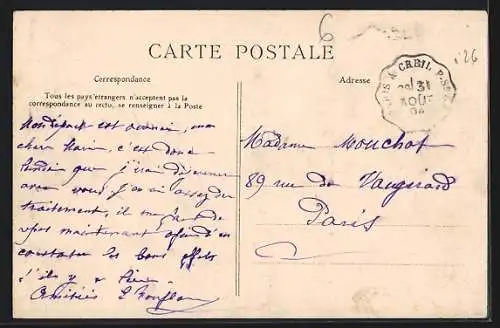 6
CARTE POSTALE
126
PARIS A CREIL P. St
31
AOUT
04
Correspondance
Adresse
Tous les pays étrangers n'acceptent pas la
correspondance au recto, se renseigner à la Poste
est mon
cher c'est donc
que j'irai déjeuner
avec vous J'en ai assez du
traitement, il me faut du
repos maintenant afin d'en
constater les bons effets
s'il y a lieu
Amitiés
Madame Mouchot
89 rue de Vaugirard
Paris